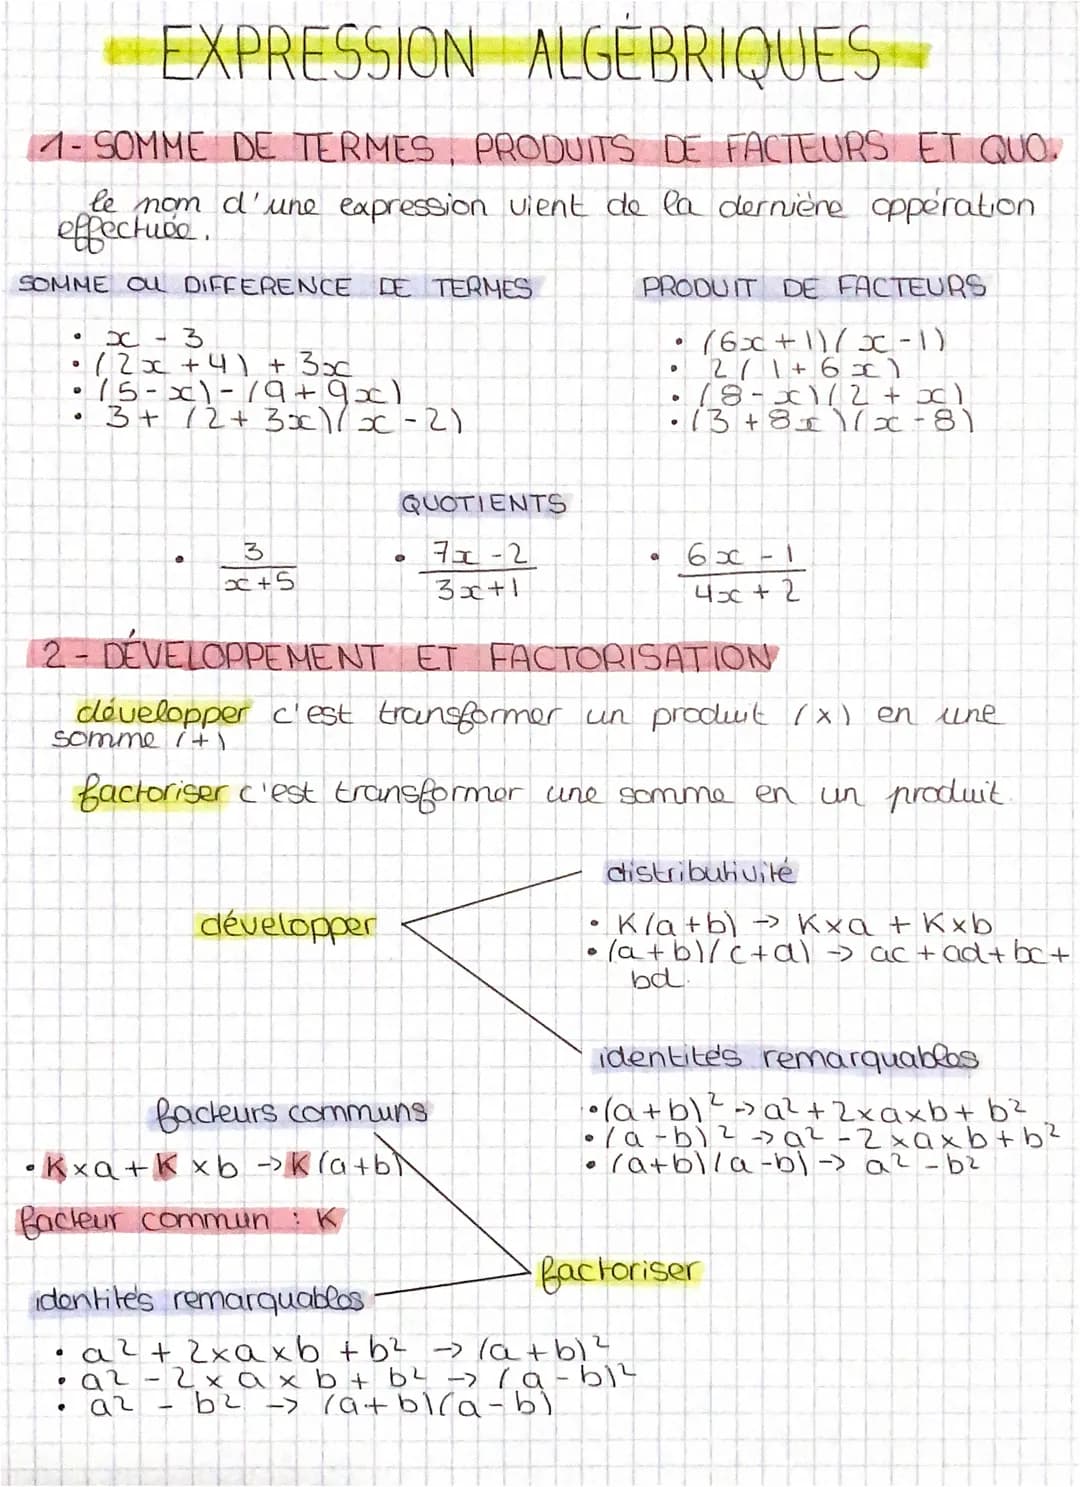 EXPRESSION ALGÉBRIQUES
1- SOMME DE TERMES, PRODUITS DE FACTEURS ET QUO.
le nom d'une expression vient de la dernière oppération
effectuée.
SOMME OU DIFFERENCE DE TERMES
• x - 3
• (2x + 4) + 3x
• (5 - x) - (9 + 9x)
• 3 + (2 + 3x)(x - 2)
PRODUIT DE FACTEURS
• (6x + 1)(x - 1)
• 2(1 + 6x)
• (8 - x)(2 + x)
• (3 + 8x)(x - 8)
QUOTIENTS
• 3/(x+5) • (7x - 2)/(3x + 1) • (6x - 1)/(4x + 2)
2 - DÉVELOPPEMENT ET FACTORISATION
développer c'est transformer un produit (x) en une
somme (+)
factoriser c'est transformer une somme en un produit.
développer
distributivité
• K(a+b) → K×a + K×b
• (a+b)(c+d) → ac + ad + bc +
bd.
identités remarquables
• (a+b)² → a² + 2×a×b + b²
• (a-b)² → a² - 2×a×b + b²
• (a+b)(a-b) → a² - b²
facteurs communs
• K×a + K×b → K(a+b)
facteur commun : K
factoriser
identités remarquables
• a² + 2×a×b + b² → (a+b)²
• a² - 2×a×b + b² → (a-b)²
• a² - b² → (a+b)(a-b)